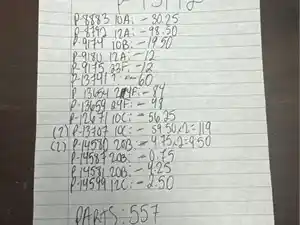 P-8883 10A: - 30.25
P-8792 12A: - 98.50
P-9174 10B: - 19.50
P-9180 12A: - 12
P-9175 23F: - 12
P-13791 ? - 60
P-13654 24F: - 84
P-13659 24F: - 98
P-12671 10C: - 56.25
(2) P-13707 10C: - 59.50x2=119
(2) P-14580 20B: - 4.75x2=9.50
P-14587 20B: - 0.75
P-14581 20B: - 4.25
P-14599 12C: - 2.50
PARTS: 557